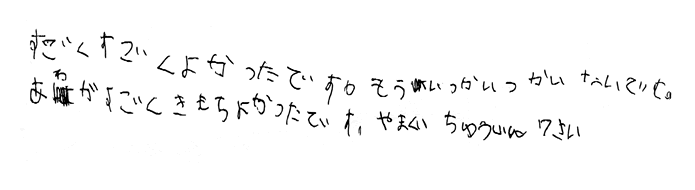 すごくすごくよかったです。もういっかいつかいたいです。
あわがすごくきもちよかったです。やまぐちちゅういん7さい